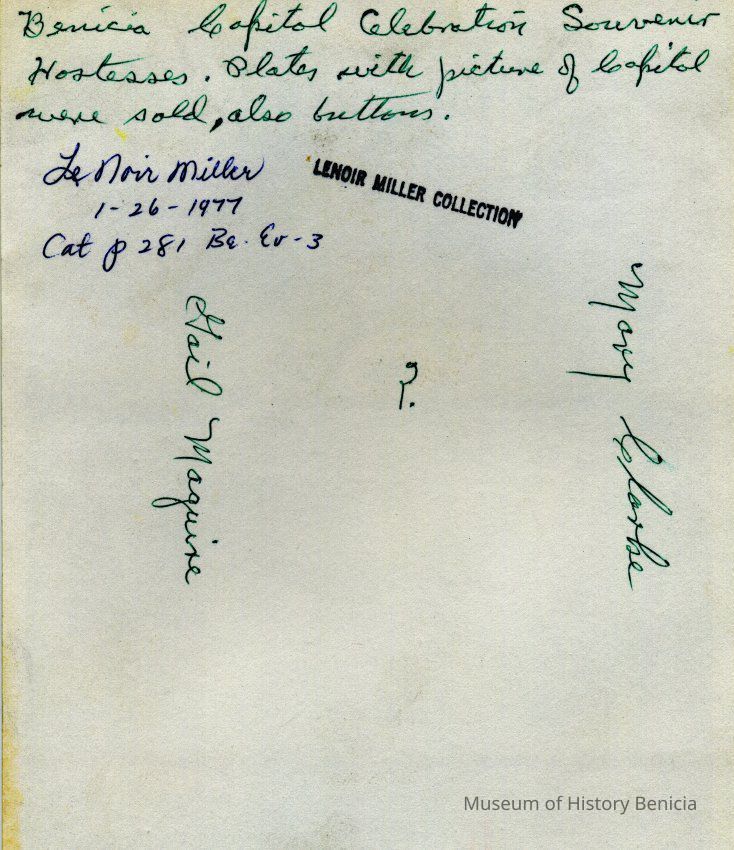 Benicia Capitol Celebration Souvenir
Hostesses. Plates with picture of Capitol
were sold, also buttons.
LeNoir Miller
LENOIR MILLER COLLECTION
1-26-1977
Cat p 281 Be. Ev-3
Gail Maguire
?
Mary Clarke
Museum of History Benicia